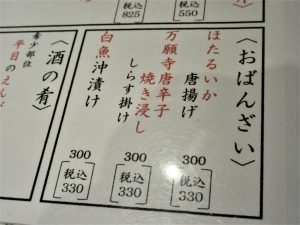 税込
550
税込
825
〈おばんざい〉
ほたるいか
唐揚げ
300
税込
330
万願寺唐辛子
焼き浸し
しらす掛け
300
税込
330
白魚沖漬け
300
税込
330
〈酒の肴〉
希少部位
平目のえん